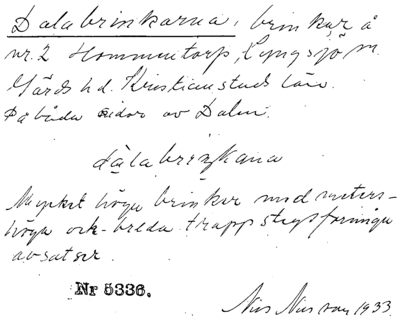 Dalabrinkarna, brinkar å
nr. 2 Hommentorp, Lyngsjö sn.
Gärds hd. Kristianstads län.
På båda sidor av Dalen.
dàlabriŋkana
Mycket höga brinkar med meters-
höga och breda trappstegsformiga
avsatser.
Nr 5336.
Nils Nilsson 1933